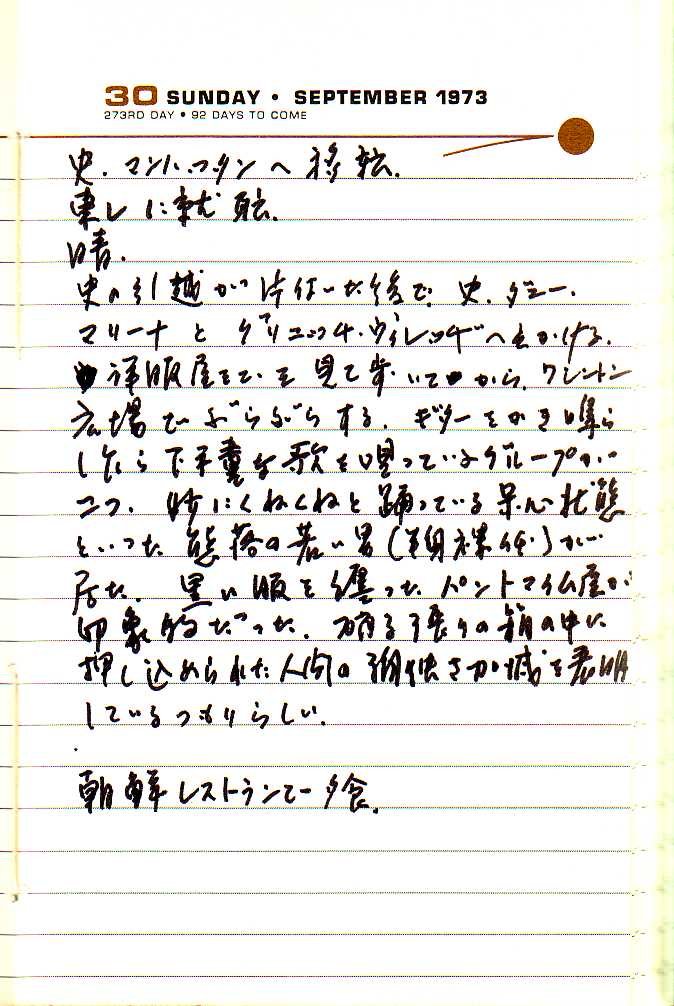 30 SUNDAY • SEPTEMBER 1973
273RD DAY • 92 DAYS TO COME
史、マンハッタンへ移転。
東レに就職。
晴。
史の引越が片付いた後で、史、ダニー、
マリーナとグリニッチ・ヴィレッヂへ出かける。
洋服屋などを見て歩いてから、ワシントン
広場でぶらぶらする。ギターをかき鳴ら
しながら下手糞な歌を唄っているグループが
二つ、妙にくねくねと踊っている 状態
といった 落の若い男（半身裸体）が
居た。黒い服を纏ったパントマイム屋が
印象的だった。硝子張りの箱の中に
押し込められた人間の 加減を表明
しているつもりらしい。
朝鮮レストランで夕食。